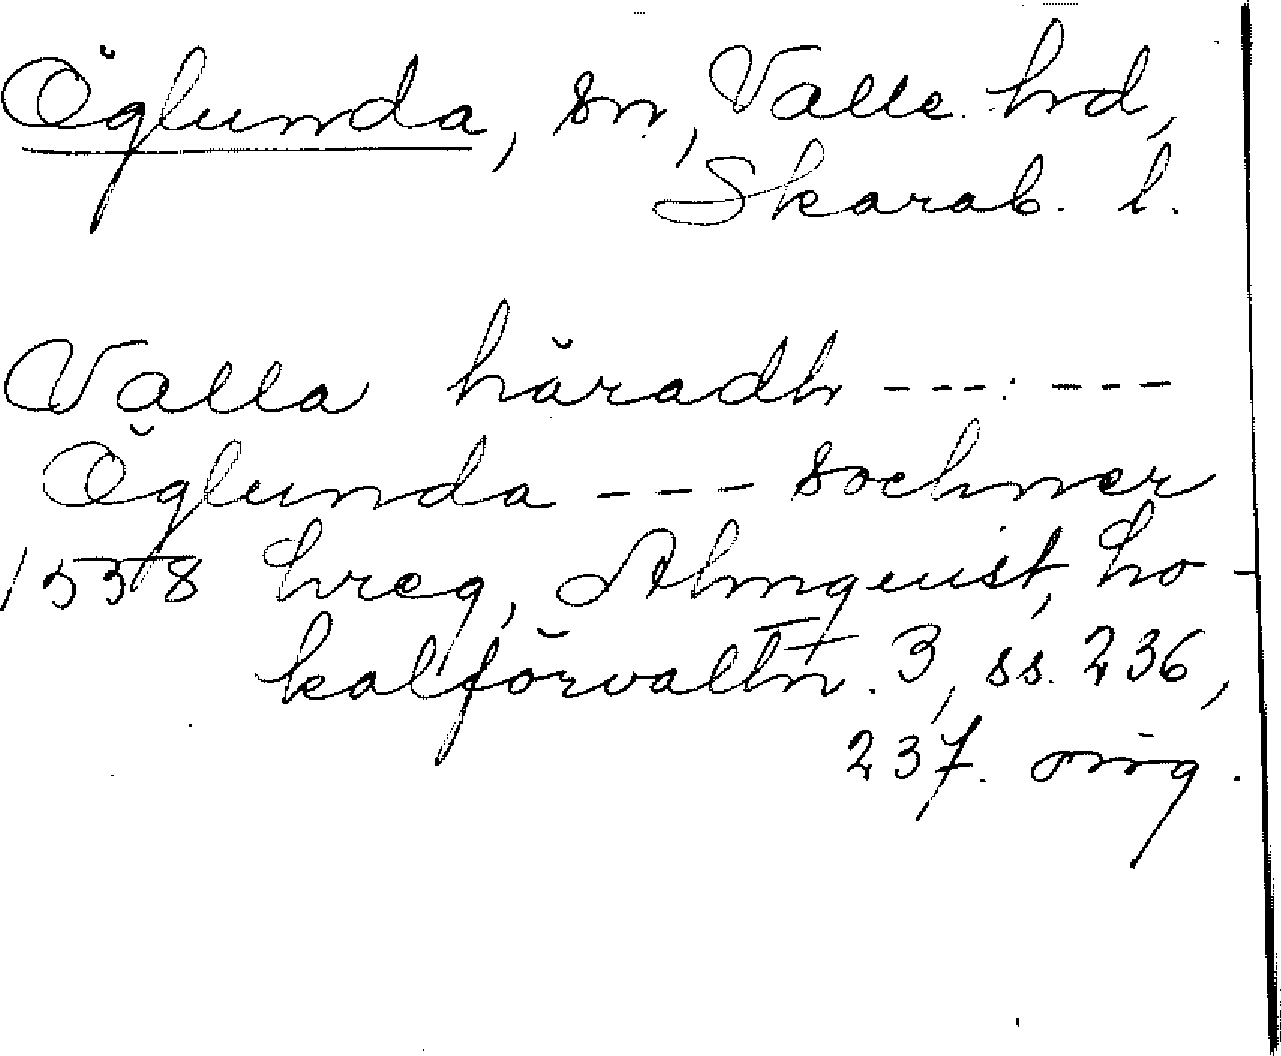 Öglunda, sn, Valle hd,
Skarab. l.
Valla häradh ---:---
Öglunda --- sochner
1538 hreg, Almquist, Lo-
kalförvaltn. 3, ss. 236,
237. orig.